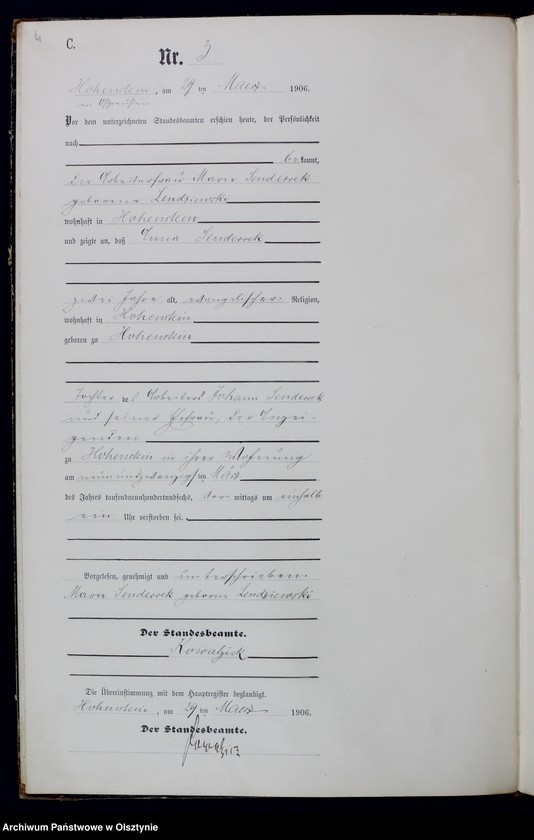 4
C.
Nr. 3
Hohenstein, am 29 ten Maerz 1906.
in Ostpreußen
Vor dem unterzeichneten Standesbeamten erschien heute, der Persönlichkeit
nach
bekannt,
die Arbeiterfrau Marie Senderrek
geborene Lendziewski
wohnhaft in Hohenstein
und zeigte an, daß Anna Senderrek
zwei Jahre alt, evangelischer Religion,
wohnhaft in Hohenstein
geboren zu Hohenstein
Tochter des Arbeiters Johann Senderrek
und seiner Ehefrau, der Anzei-
genden
zu Hohenstein in ihrer Wohnung
am neunundzwanzigsten März
des Jahres tausendneunhundertundsechs, vormittags um einhalb
ein Uhr verstorben sei.
Vorgelesen, genehmigt und unterschrieben.
Marie Senderrek geborene Lendziewski
Der Standesbeamte.
Kowalzick
Die Übereinstimmung mit dem Hauptregister beglaubigt.
Hohenstein, am 29 ten Maerz 1906.
Der Standesbeamte.
Kowalzick
Archiwum Państwowe w Olsztynie